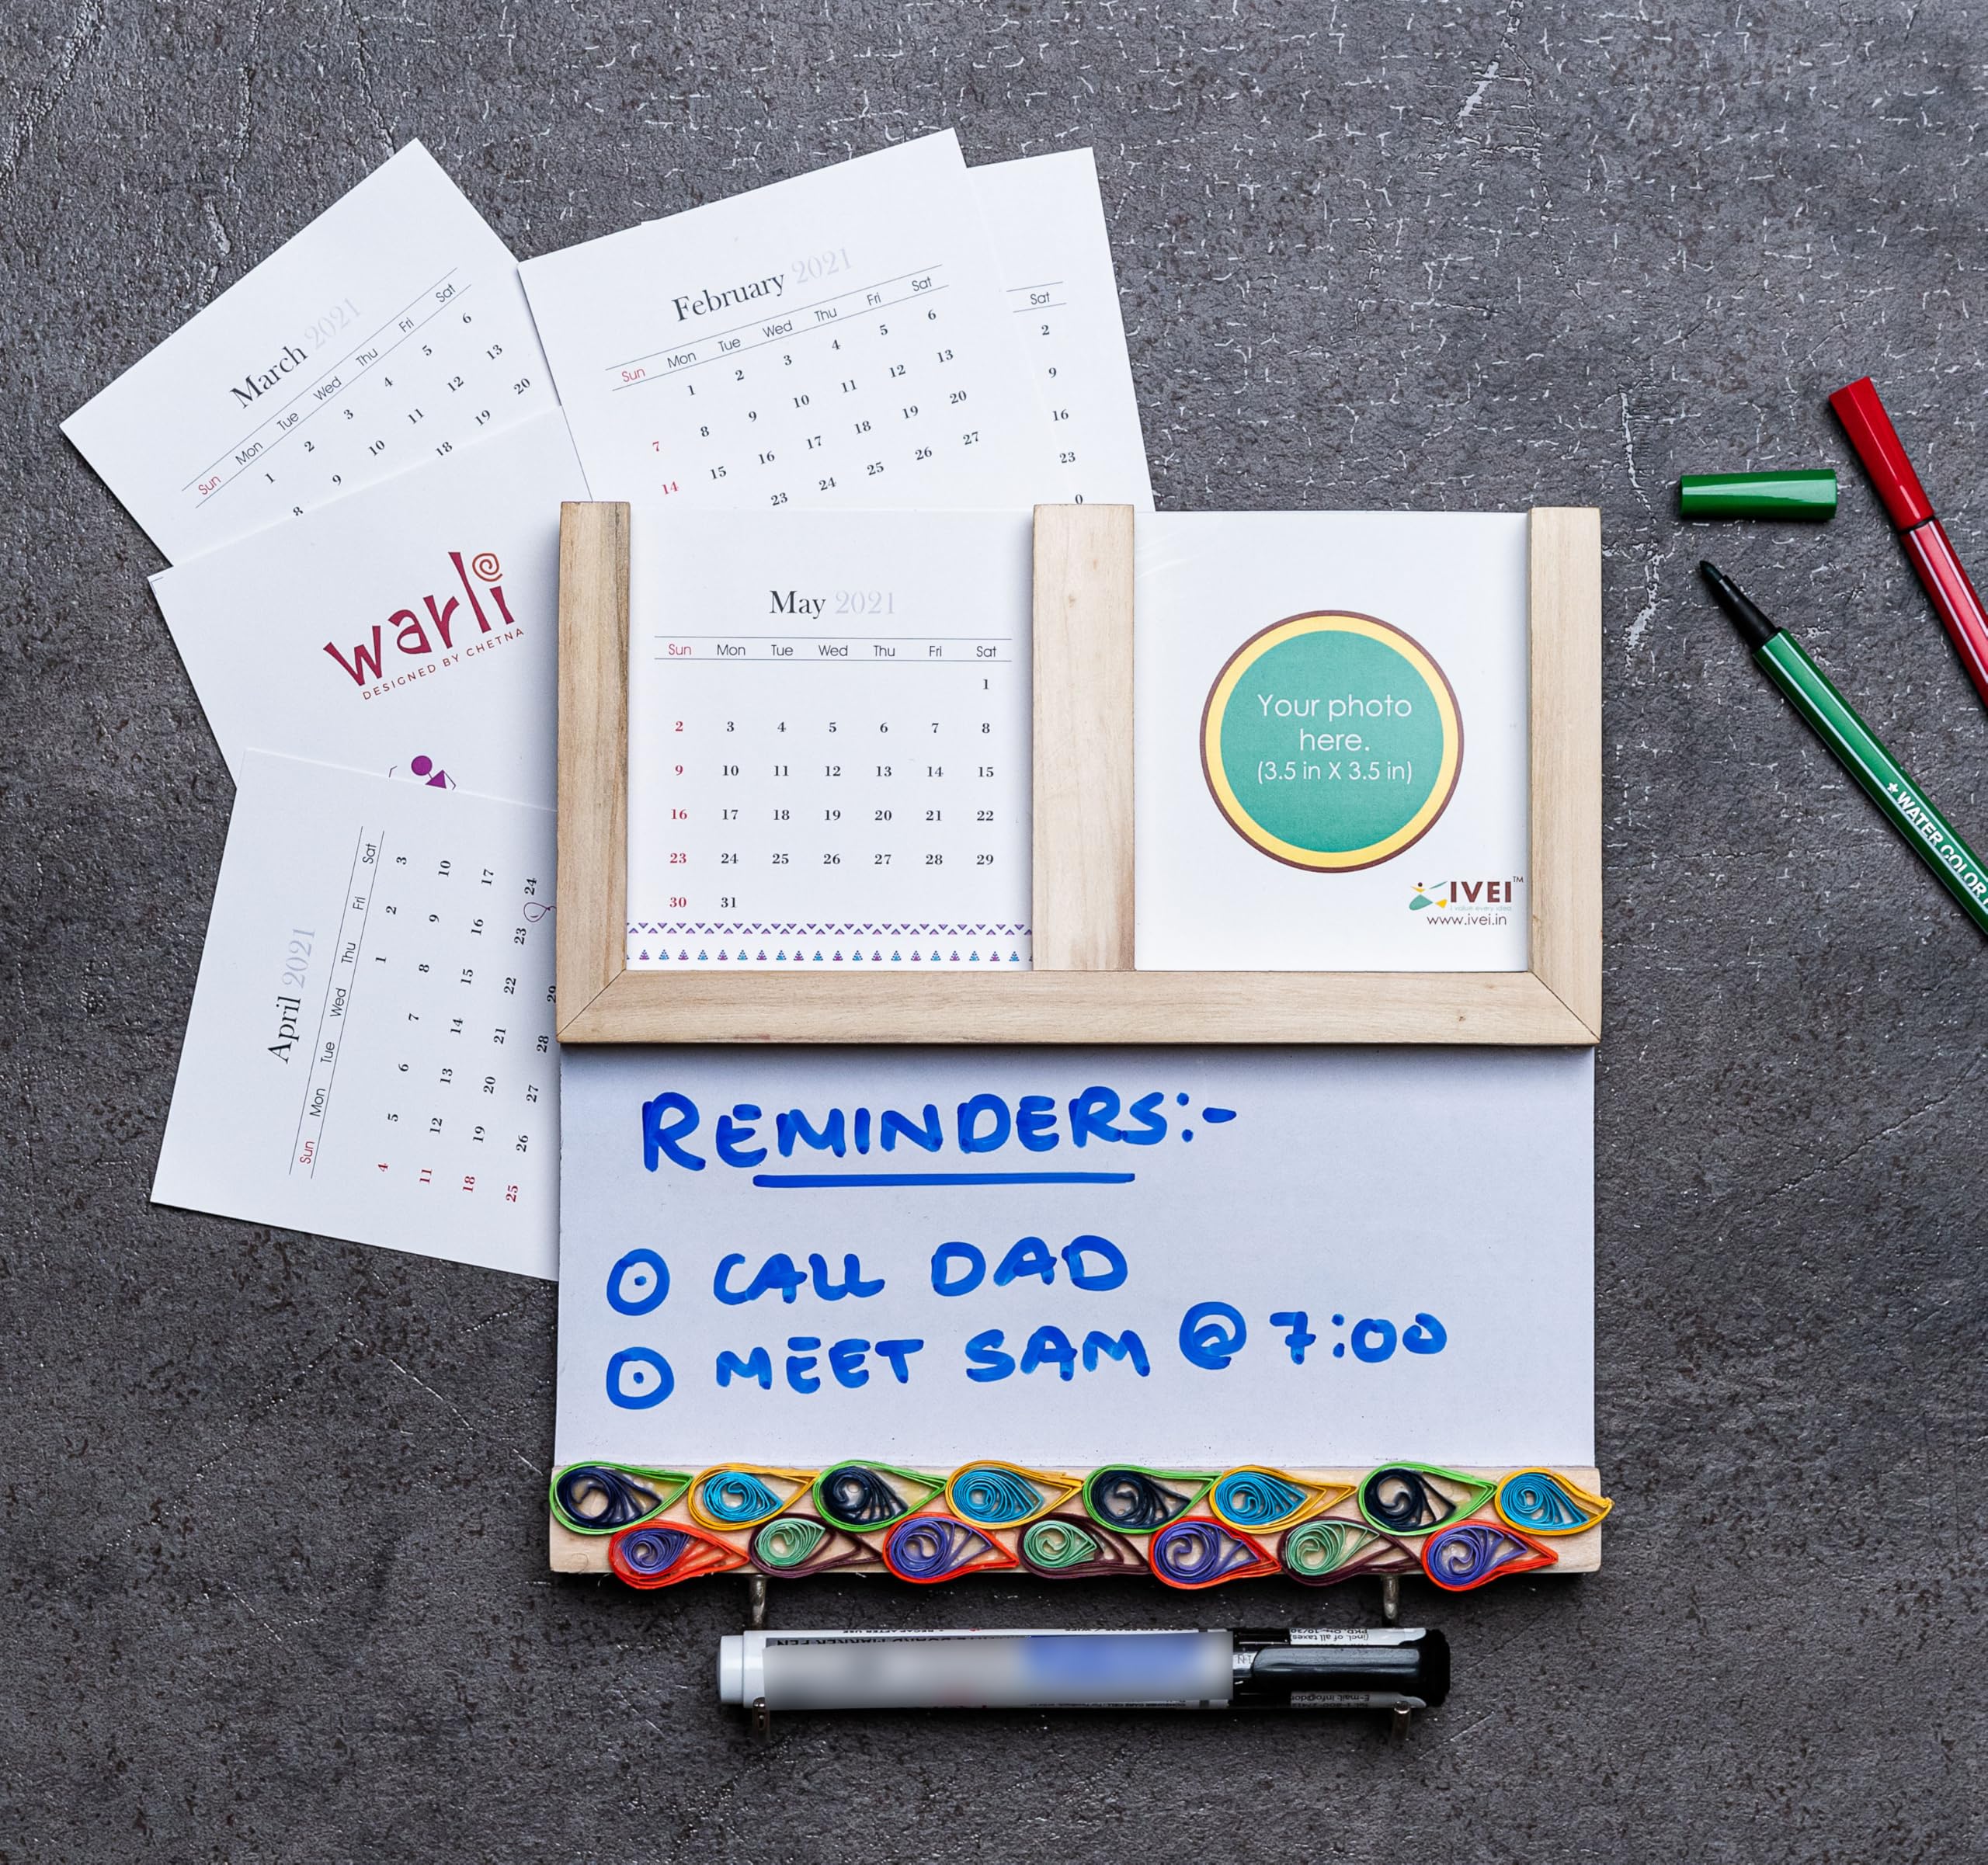 March 2021
Sun Mon Tue Wed Thu Fri Sat
1 2 3 4 5 6
8 9 10 11 12 13
18 19 20
February 2021
Sun Mon Tue Wed Thu Fri Sat
1 2 3 4 5 6
7 8 9 10 11 12 13
14 15 16 17 18 19 20
23 24 25 26 27
Sat
2
9
16
23
warli
DESIGNED BY CHETNA
April 2021
Sun Mon Tue Wed Thu Fri Sat
1 2 3
4 5 6 7 8 9 10
11 12 13 14 15 16 17
18 19 20 21 22 23 24
25 26 27 28 29
May 2021
Sun Mon Tue Wed Thu Fri Sat
1
2 3 4 5 6 7 8
9 10 11 12 13 14 15
16 17 18 19 20 21 22
23 24 25 26 27 28 29
30 31
Your photo
here.
(3.5 in X 3.5 in)
IVEI™
www.ivei.in
WATER COLOR
REMINDERS:-
CALL DAD
MEET SAM @ 7:00